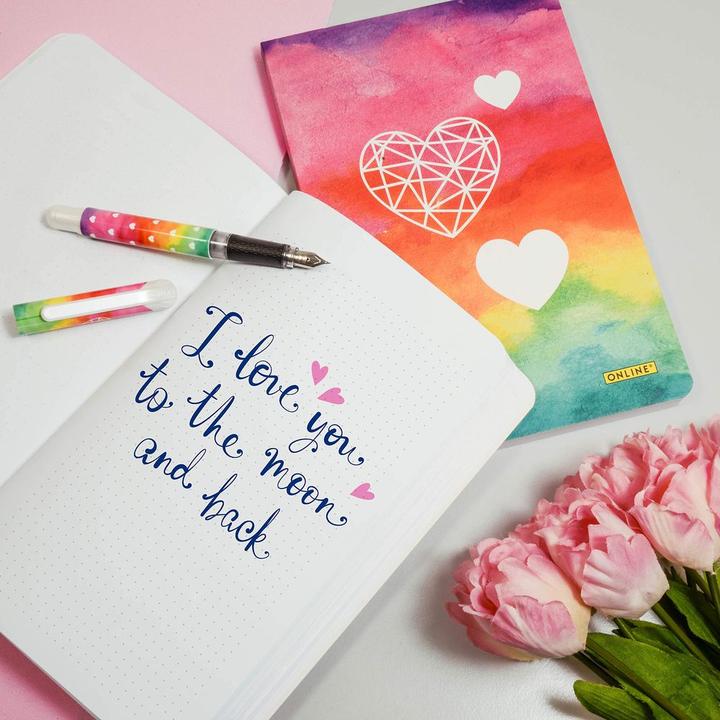 I love you
to the moon
and back
ONLINE®